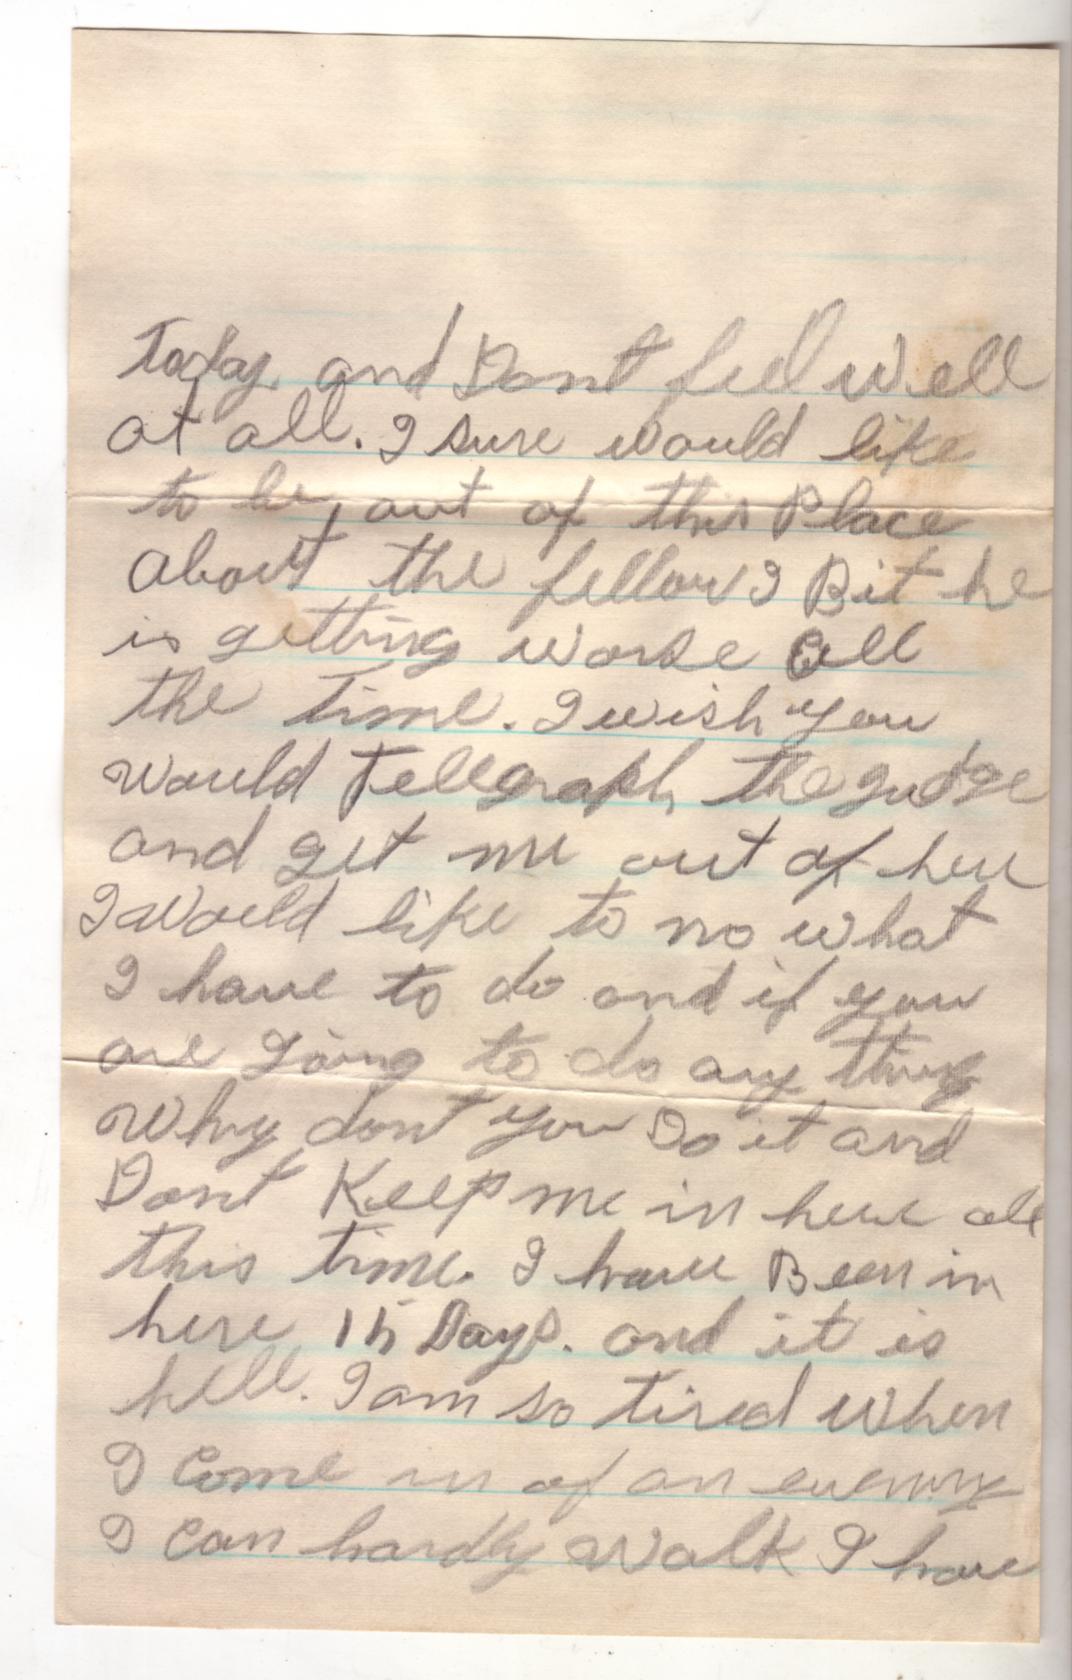 Today. and Dont feel well
at all. I sure would like
to be out of this Place
about the fellow I Bit he
is getting worse all
the time. I wish you
would Tellgraph the gudge
and get me out of here
I would like to no what
I have to do and if you
are going to do any thing
Why dont you Do it and
Dont Keep me in here all
this time. I have Been in
here 15 Days. and it is
hell. I am so tired when
I Come in of an evening
I Can hardly walk I have